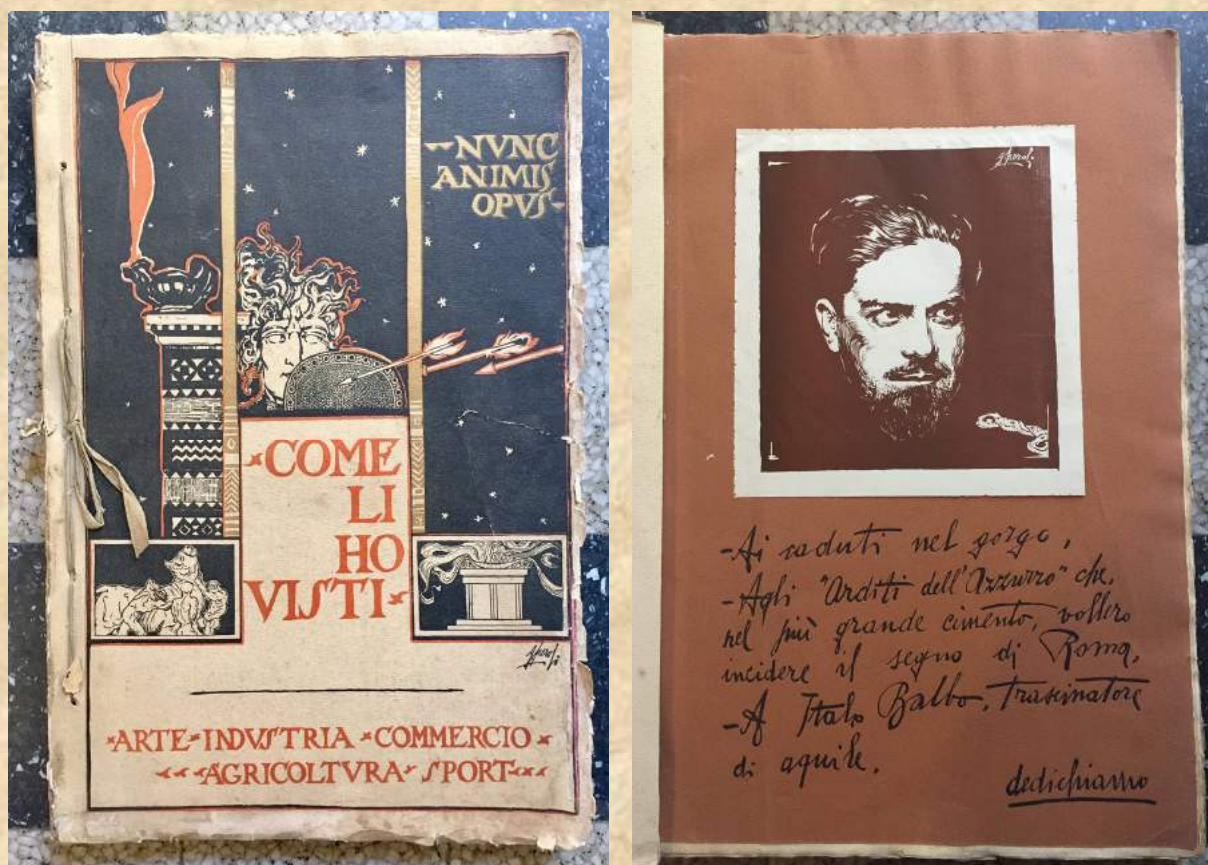 ··NVNC
ANIMIS
OPVS·
·COME
LI
HO
VISTI·
·ARTE·INDVSTRIA·COMMERCIO·
·AGRICOLTVRA·SPORT·
-Ai caduti nel gorgo,
-Agli "Arditi dell'Azzurro" che,
nel più grande cimento, vollero
incidere il segno di Roma,
-A Italo Balbo, trascinatore
di aquile,
dedichiamo